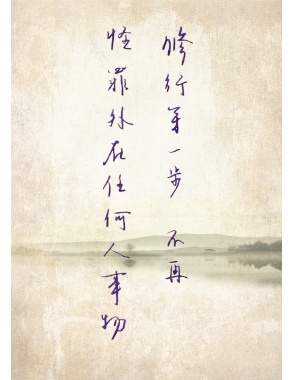 修行第一步 不再
怪罪外在任何人事物